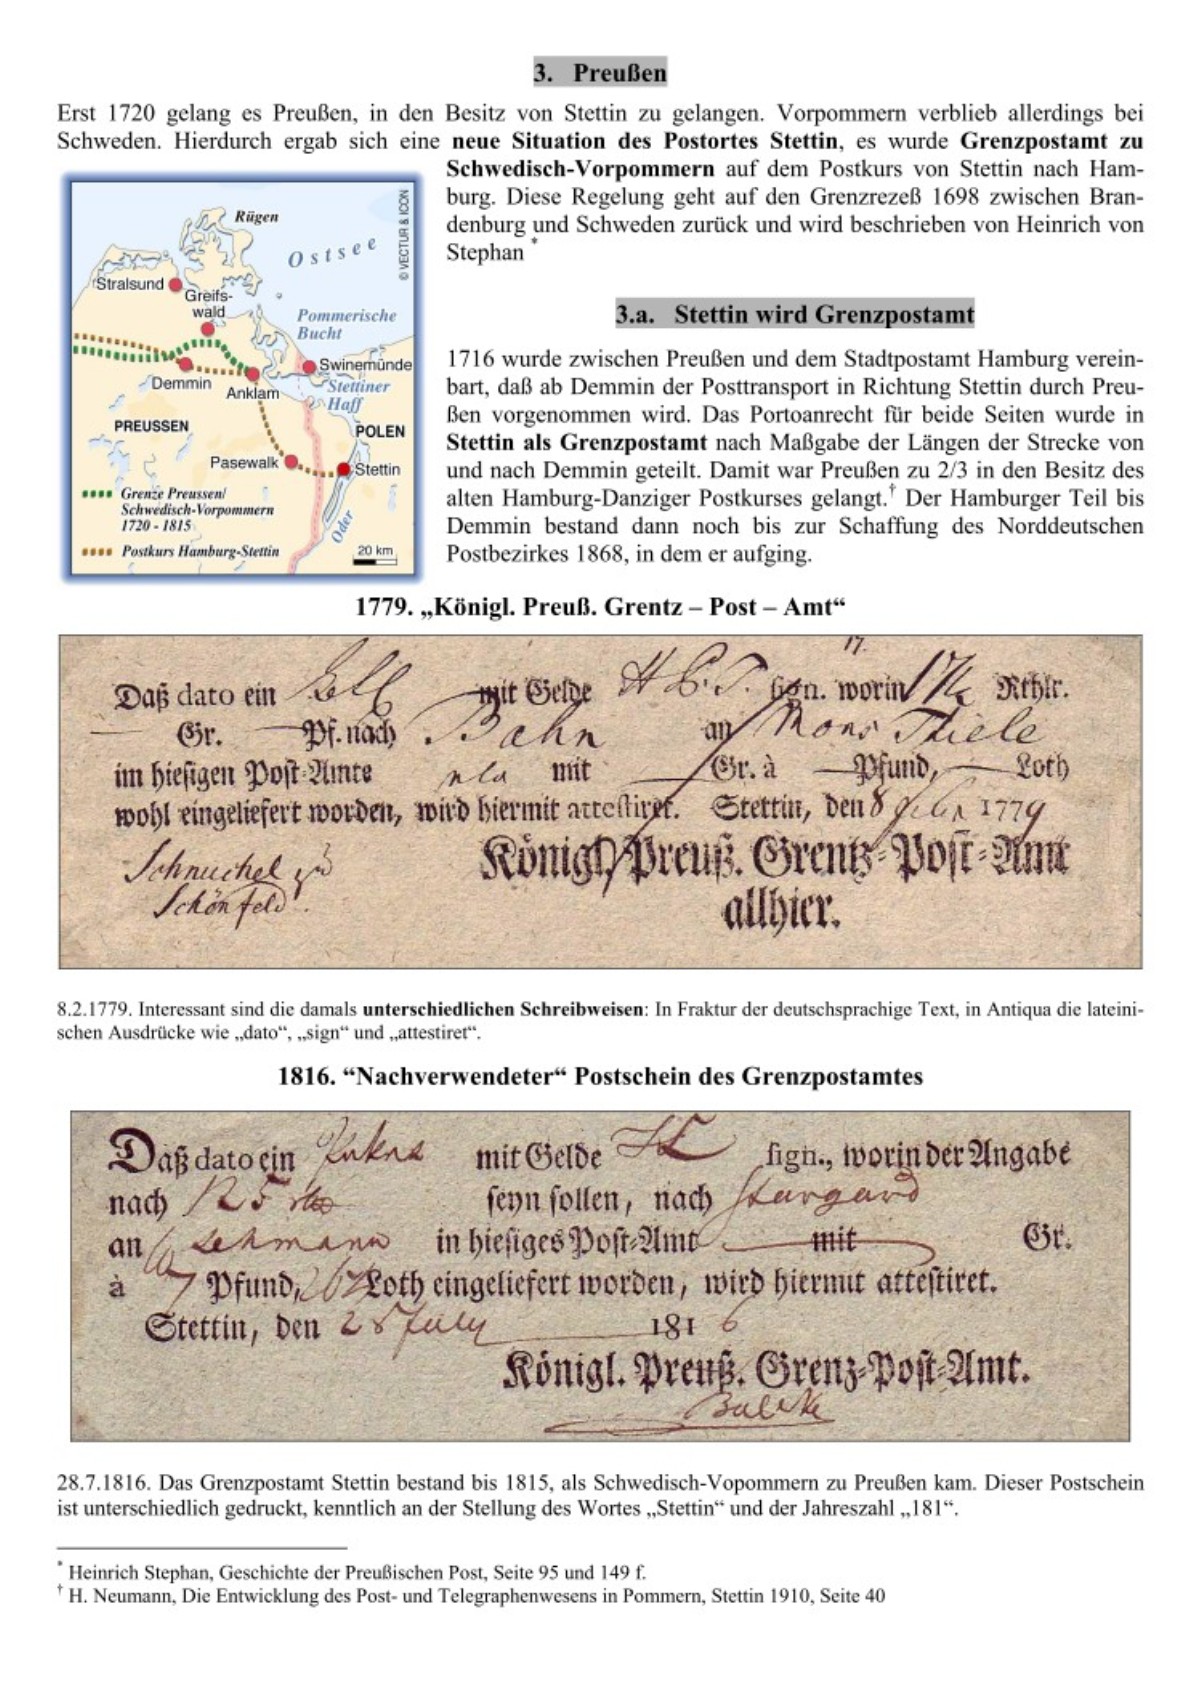 3. Preußen
Erst 1720 gelang es Preußen, in den Besitz von Stettin zu gelangen. Vorpommern verblieb allerdings bei
Schweden. Hierdurch ergab sich eine neue Situation des Postortes Stettin, es wurde Grenzpostamt zu
Schwedisch-Vorpommern auf dem Postkurs von Stettin nach Ham-
burg. Diese Regelung geht auf den Grenzrezeß 1698 zwischen Bran-
denburg und Schweden zurück und wird beschrieben von Heinrich von
Stephan *
Rügen
Ostsee
© VECTUR & ICON
Stralsund
Greifs-
wald
Pommerische
Bucht
Swinemünde
Demmin
Anklam
Stettiner
Haff
PREUSSEN
POLEN
Pasewalk
Stettin
Grenze Preussen/
Schwedisch-Vorpommern
1720 - 1815
Oder
Postkurs Hamburg-Stettin
20 km
3.a. Stettin wird Grenzpostamt
1716 wurde zwischen Preußen und dem Stadtpostamt Hamburg verein-
bart, daß ab Demmin der Posttransport in Richtung Stettin durch Preu-
ßen vorgenommen wird. Das Portoanrecht für beide Seiten wurde in
Stettin als Grenzpostamt nach Maßgabe der Längen der Strecke von
und nach Demmin geteilt. Damit war Preußen zu 2/3 in den Besitz des
alten Hamburg-Danziger Postkurses gelangt.† Der Hamburger Teil bis
Demmin bestand dann noch bis zur Schaffung des Norddeutschen
Postbezirkes 1868, in dem er aufging.
1779. „Königl. Preuß. Grentz – Post – Amt“
17.
Daß dato ein mit Gelde sign. worin Rthlr.
Gr. Pf. nach Bahn an Mons Thiele
im hiesigen Post-Amte mit Gr. à Pfund, Loth
wohl eingeliefert worden, wird hiermit attestiret. Stettin, den 8 1779
Königl. Preuß. Grentz-Post-Amt
Schönfeld.
allhier.
8.2.1779. Interessant sind die damals unterschiedlichen Schreibweisen: In Fraktur der deutschsprachige Text, in Antiqua die lateini-
schen Ausdrücke wie „dato“, „sign“ und „attestiret“.
1816. “Nachverwendeter“ Postschein des Grenzpostamtes
Daß dato ein mit Gelde sign., worin der Angabe
nach seyn sollen, nach Stargard
an Lehmann in hiesiges Post-Amt mit Gr.
à 7 Pfund, Loth eingeliefert worden, wird hiermit attestiret.
Stettin, den 28 July 1816
Königl. Preuß. Grenz-Post-Amt.
28.7.1816. Das Grenzpostamt Stettin bestand bis 1815, als Schwedisch-Vopommern zu Preußen kam. Dieser Postschein
ist unterschiedlich gedruckt, kenntlich an der Stellung des Wortes „Stettin“ und der Jahreszahl „181“.
* Heinrich Stephan, Geschichte der Preußischen Post, Seite 95 und 149 f.
† H. Neumann, Die Entwicklung des Post- und Telegraphenwesens in Pommern, Stettin 1910, Seite 40